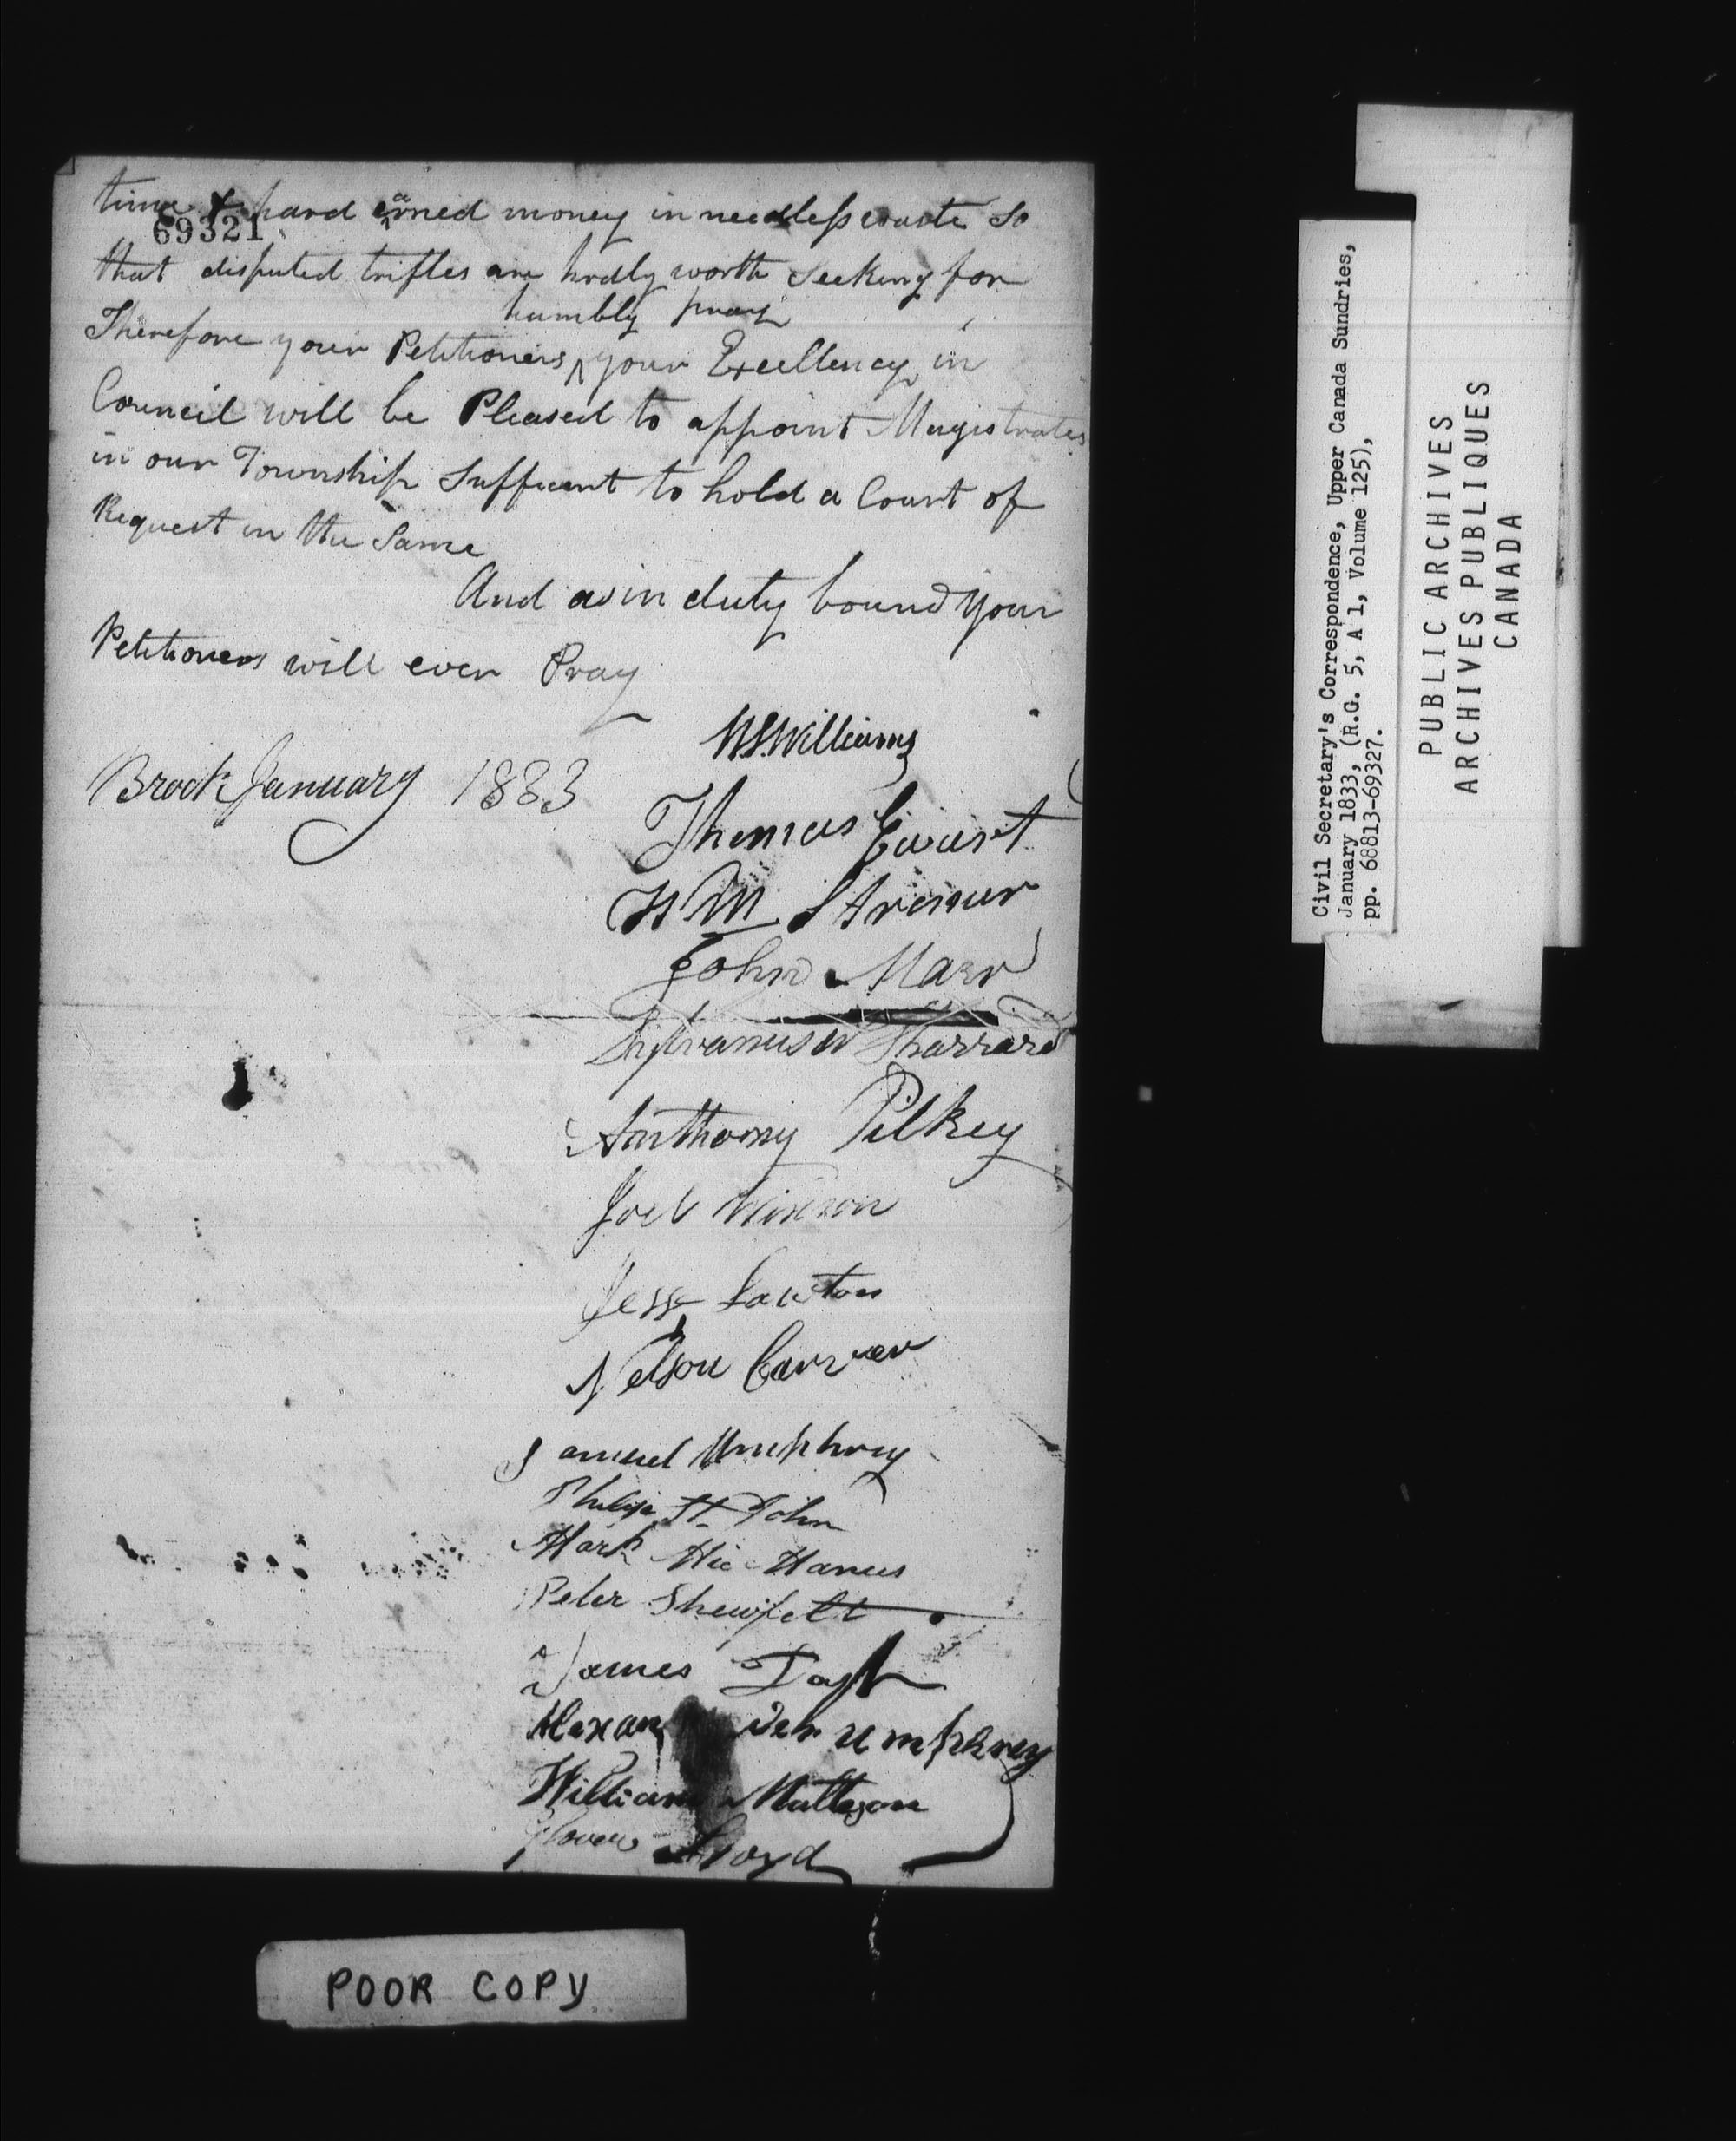 time & hard earned money in needless waste So
69321
that disputed trifles are hrdly worth Seeking for
humbly pray
Therefore your Petitioners ^ your Excellency in
Council will be Pleased to appoint Magistrates
in our Township Suffient to hold a Court of
Request in the Same
And as in duty bound your
Petitioners will ever Pray
W.S.Williams
Brock January 1833
Thomas Ewart
Wm
John Marr
Sylvanus W Sharrard
Anthony Pilkey
Joel
Jesse Lawton
Nelson Carver
Samuel Umphrey
Philip St. John
Mark Mc Manus
Peter Shewfelt
James Taft
Alexander Umphrey
William Matteson
Lloyd
POOR COPY
Civil Secretary's Correspondence, Upper Canada Sundries,
January 1833, (R.G. 5, A 1, Volume 125),
pp. 68813-69327.
PUBLIC ARCHIVES
ARCHIVES PUBLIQUES
CANADA